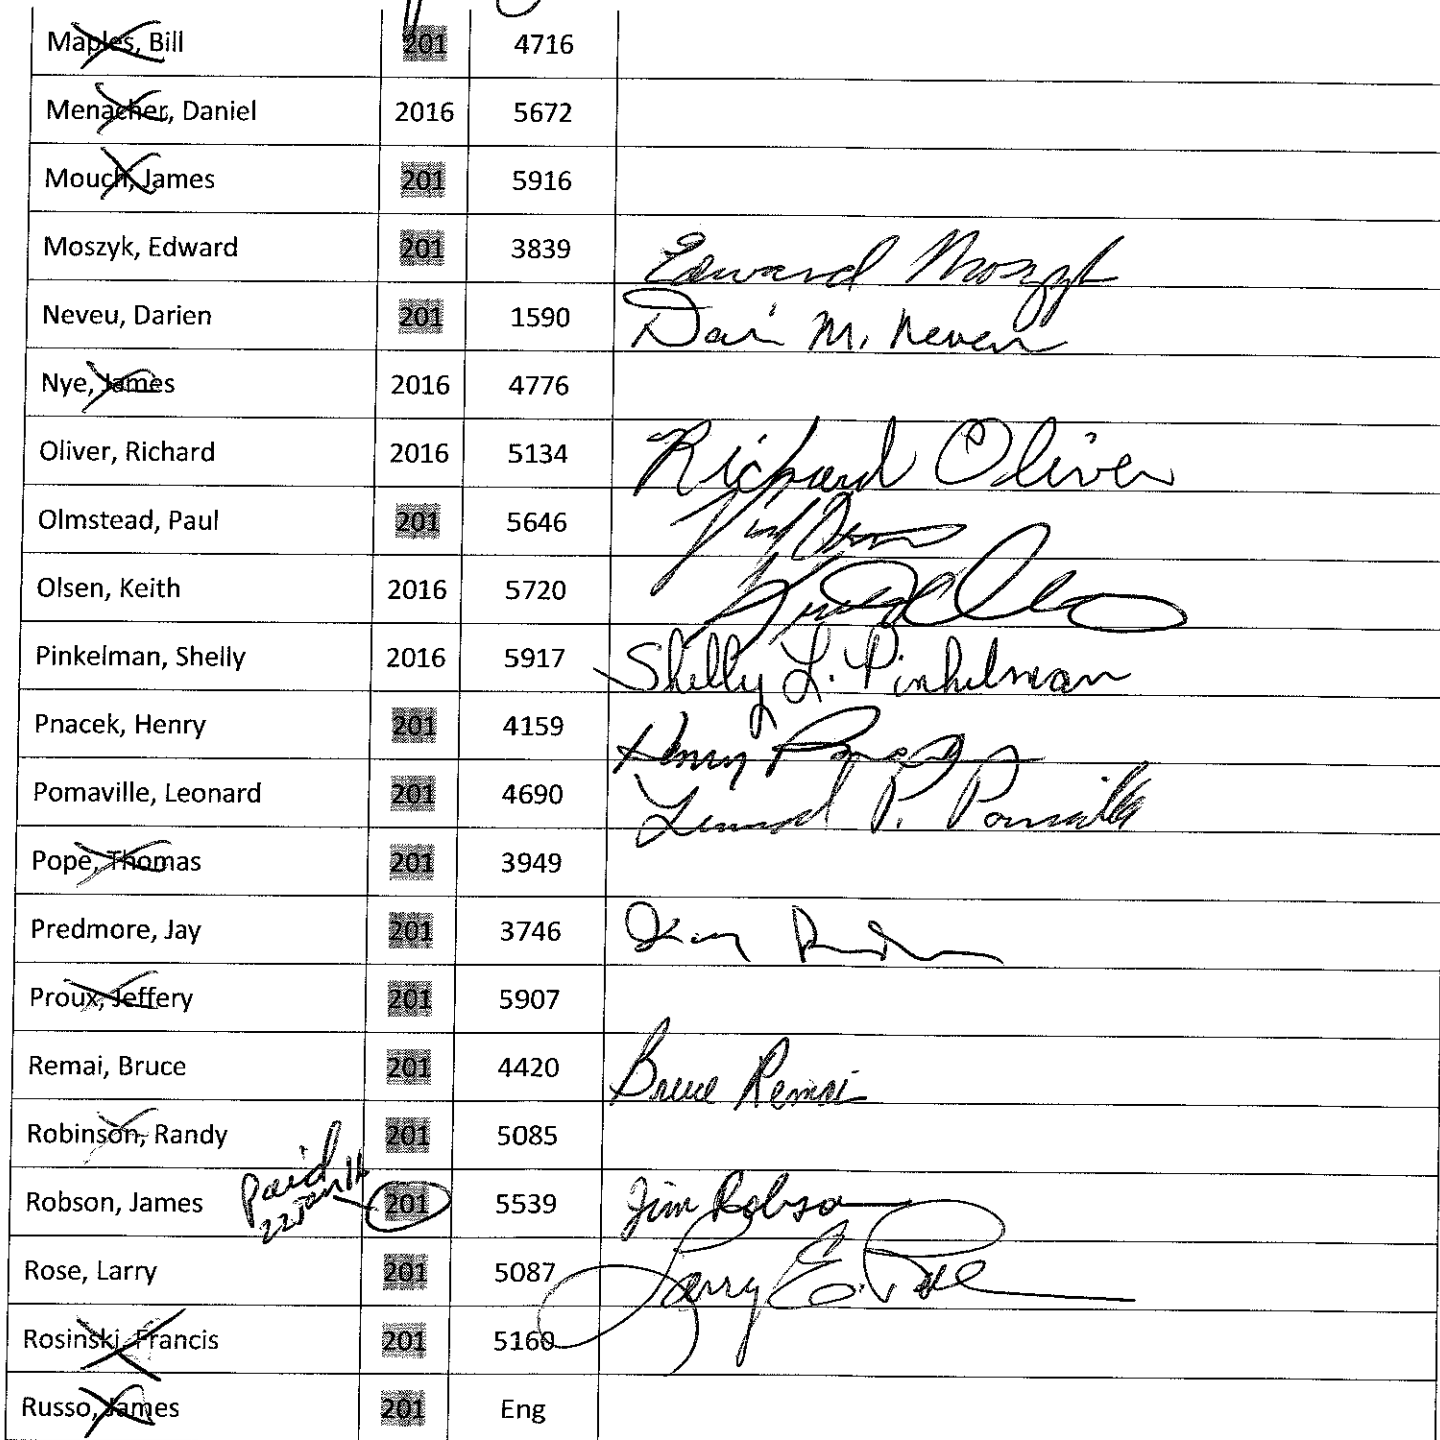 Maples, Bill 201 4716
Menacher, Daniel 2016 5672
Mouch, James 201 5916
Moszyk, Edward 201 3839 Edward Moszyk
Neveu, Darien 201 1590 M. Neveu
Nye, James 2016 4776
Oliver, Richard 2016 5134 Richard Oliver
Olmstead, Paul 201 5646
Olsen, Keith 2016 5720
Pinkelman, Shelly 2016 5917 Shelly L. Pinkelman
Pnacek, Henry 201 4159 Henry Pnacek
Pomaville, Leonard 201 4690 Leonard P. Pomaville
Pope, Thomas 201 3949
Predmore, Jay 201 3746
Proux, Jeffery 201 5907
Remai, Bruce 201 4420 Bruce Remai
Robinson, Randy 201 5085
Paid
22 Jan 16
Robson, James 201 5539 Jim Robson
Rose, Larry 201 5087 Larry E. Rose
Rosinski, Francis 201 5160
Russo, James 201 Eng